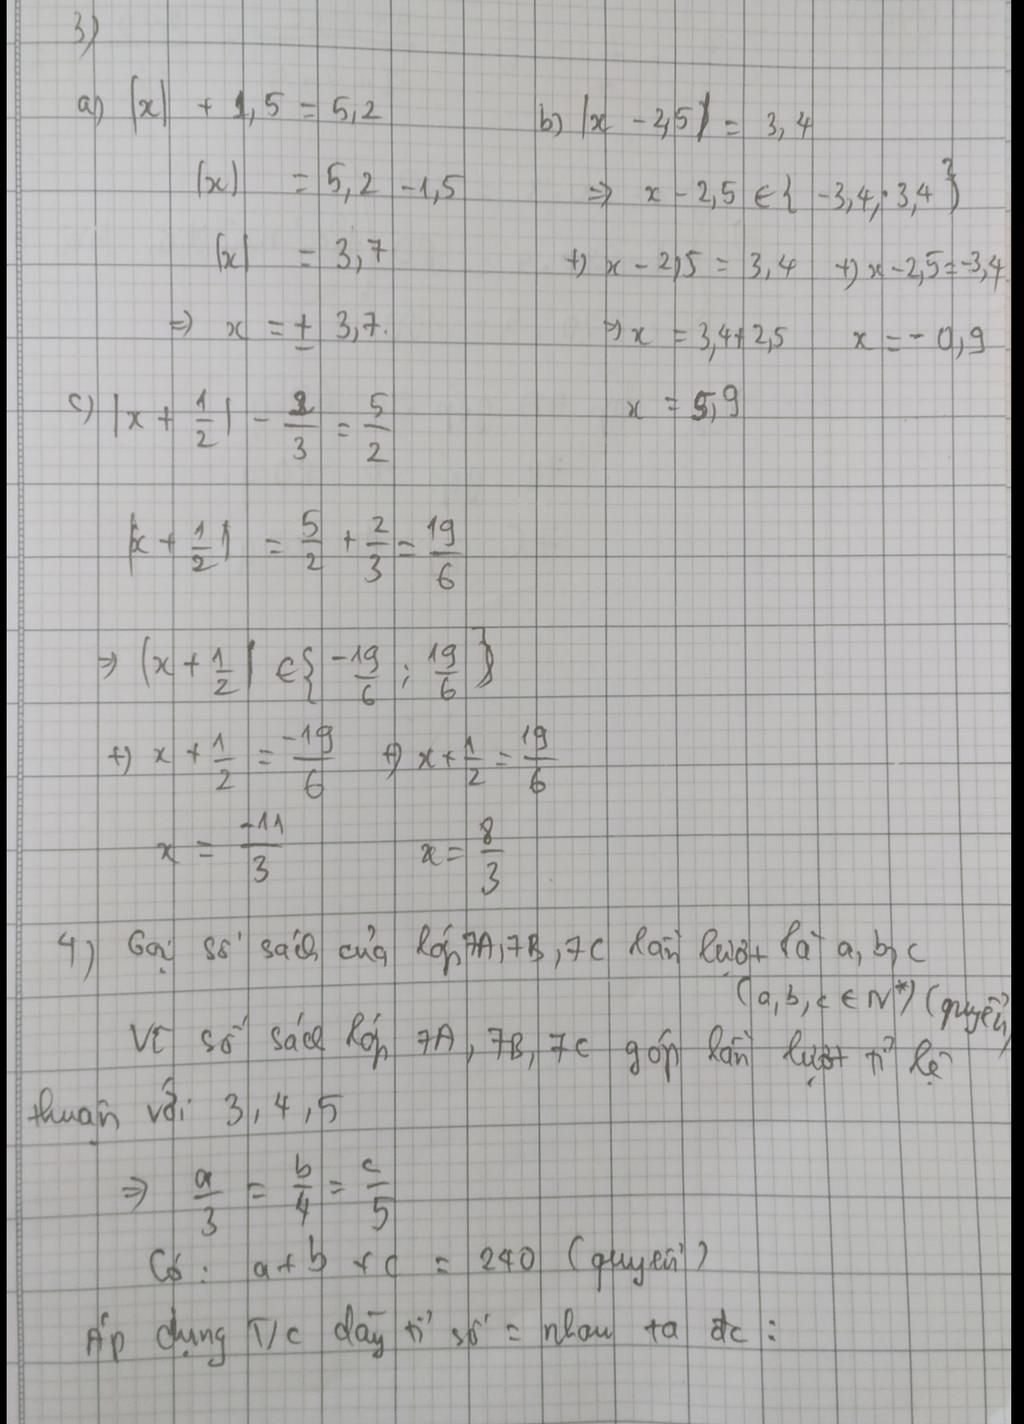 3)
a) |x| + 1,5 = 5,2
|x| = 5,2 - 1,5
|x| = 3,7
⇒ x = ± 3,7.
b) |x - 2,5| = 3,4
⇒ x - 2,5 ∈ { -3,4; 3,4 }
+) x - 2,5 = 3,4 +) x - 2,5 = -3,4
⇒ x = 3,4 + 2,5 x = - 0,9
x = 5,9
c) |x + 1/2| - 2/3 = 5/2
|x + 1/2| = 5/2 + 2/3 = 19/6
⇒ |x + 1/2| ∈ { -19/6 ; 19/6 }
+) x + 1/2 = -19/6 +) x + 1/2 = 19/6
x = -11/3 x = 8/3
4) Gọi số sách của lớp 7A, 7B, 7C lần lượt là a, b, c
(a, b, c ∈ N*) (quyển)
Vì số sách lớp 7A, 7B, 7C góp lần lượt tỉ lệ
thuận với 3, 4, 5
⇒ a/3 = b/4 = c/5
Có: a + b + c = 240 (quyển)
Áp dụng T/c dãy tỉ số = nhau ta đc :